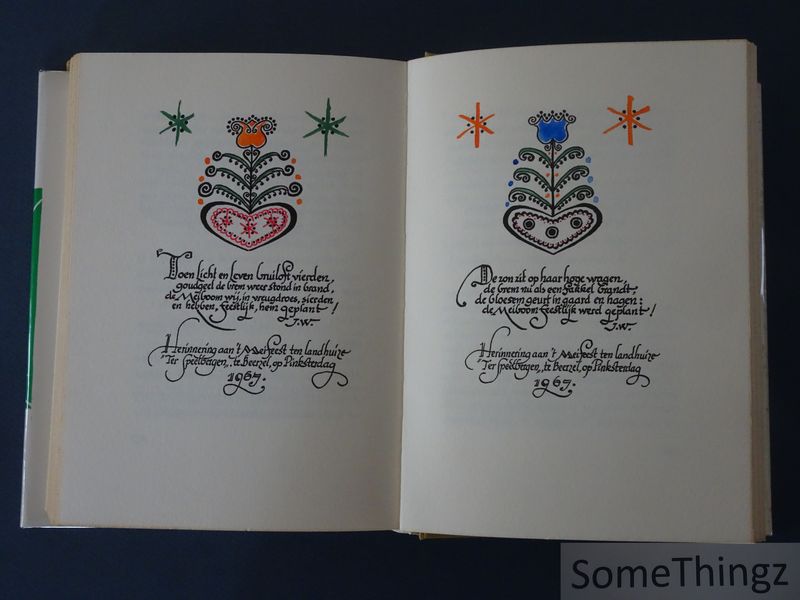 Toen licht en leven bruiloft vierden,
goudgeel de brem weer stond in brand,
de Meiboom wij, in vreugdroes, sierden
en hebben, feestlijk, hem geplant!
J.W.
Herinnering aan 't Meifeest ten landhuize
"Ter Speelbergen," te Beerzel, op Pinksterdag
1967.
De zon zit op haar hoge wagen,
de brem nu als een fakkel brandt,
de bloesem geurt in gaard en hagen:
de Meiboom feestlijk werd geplant!
J.W.
Herinnering aan 't Meifeest ten landhuize
"Ter Speelbergen," te Beerzel, op Pinksterdag
1967.
SomeThingz